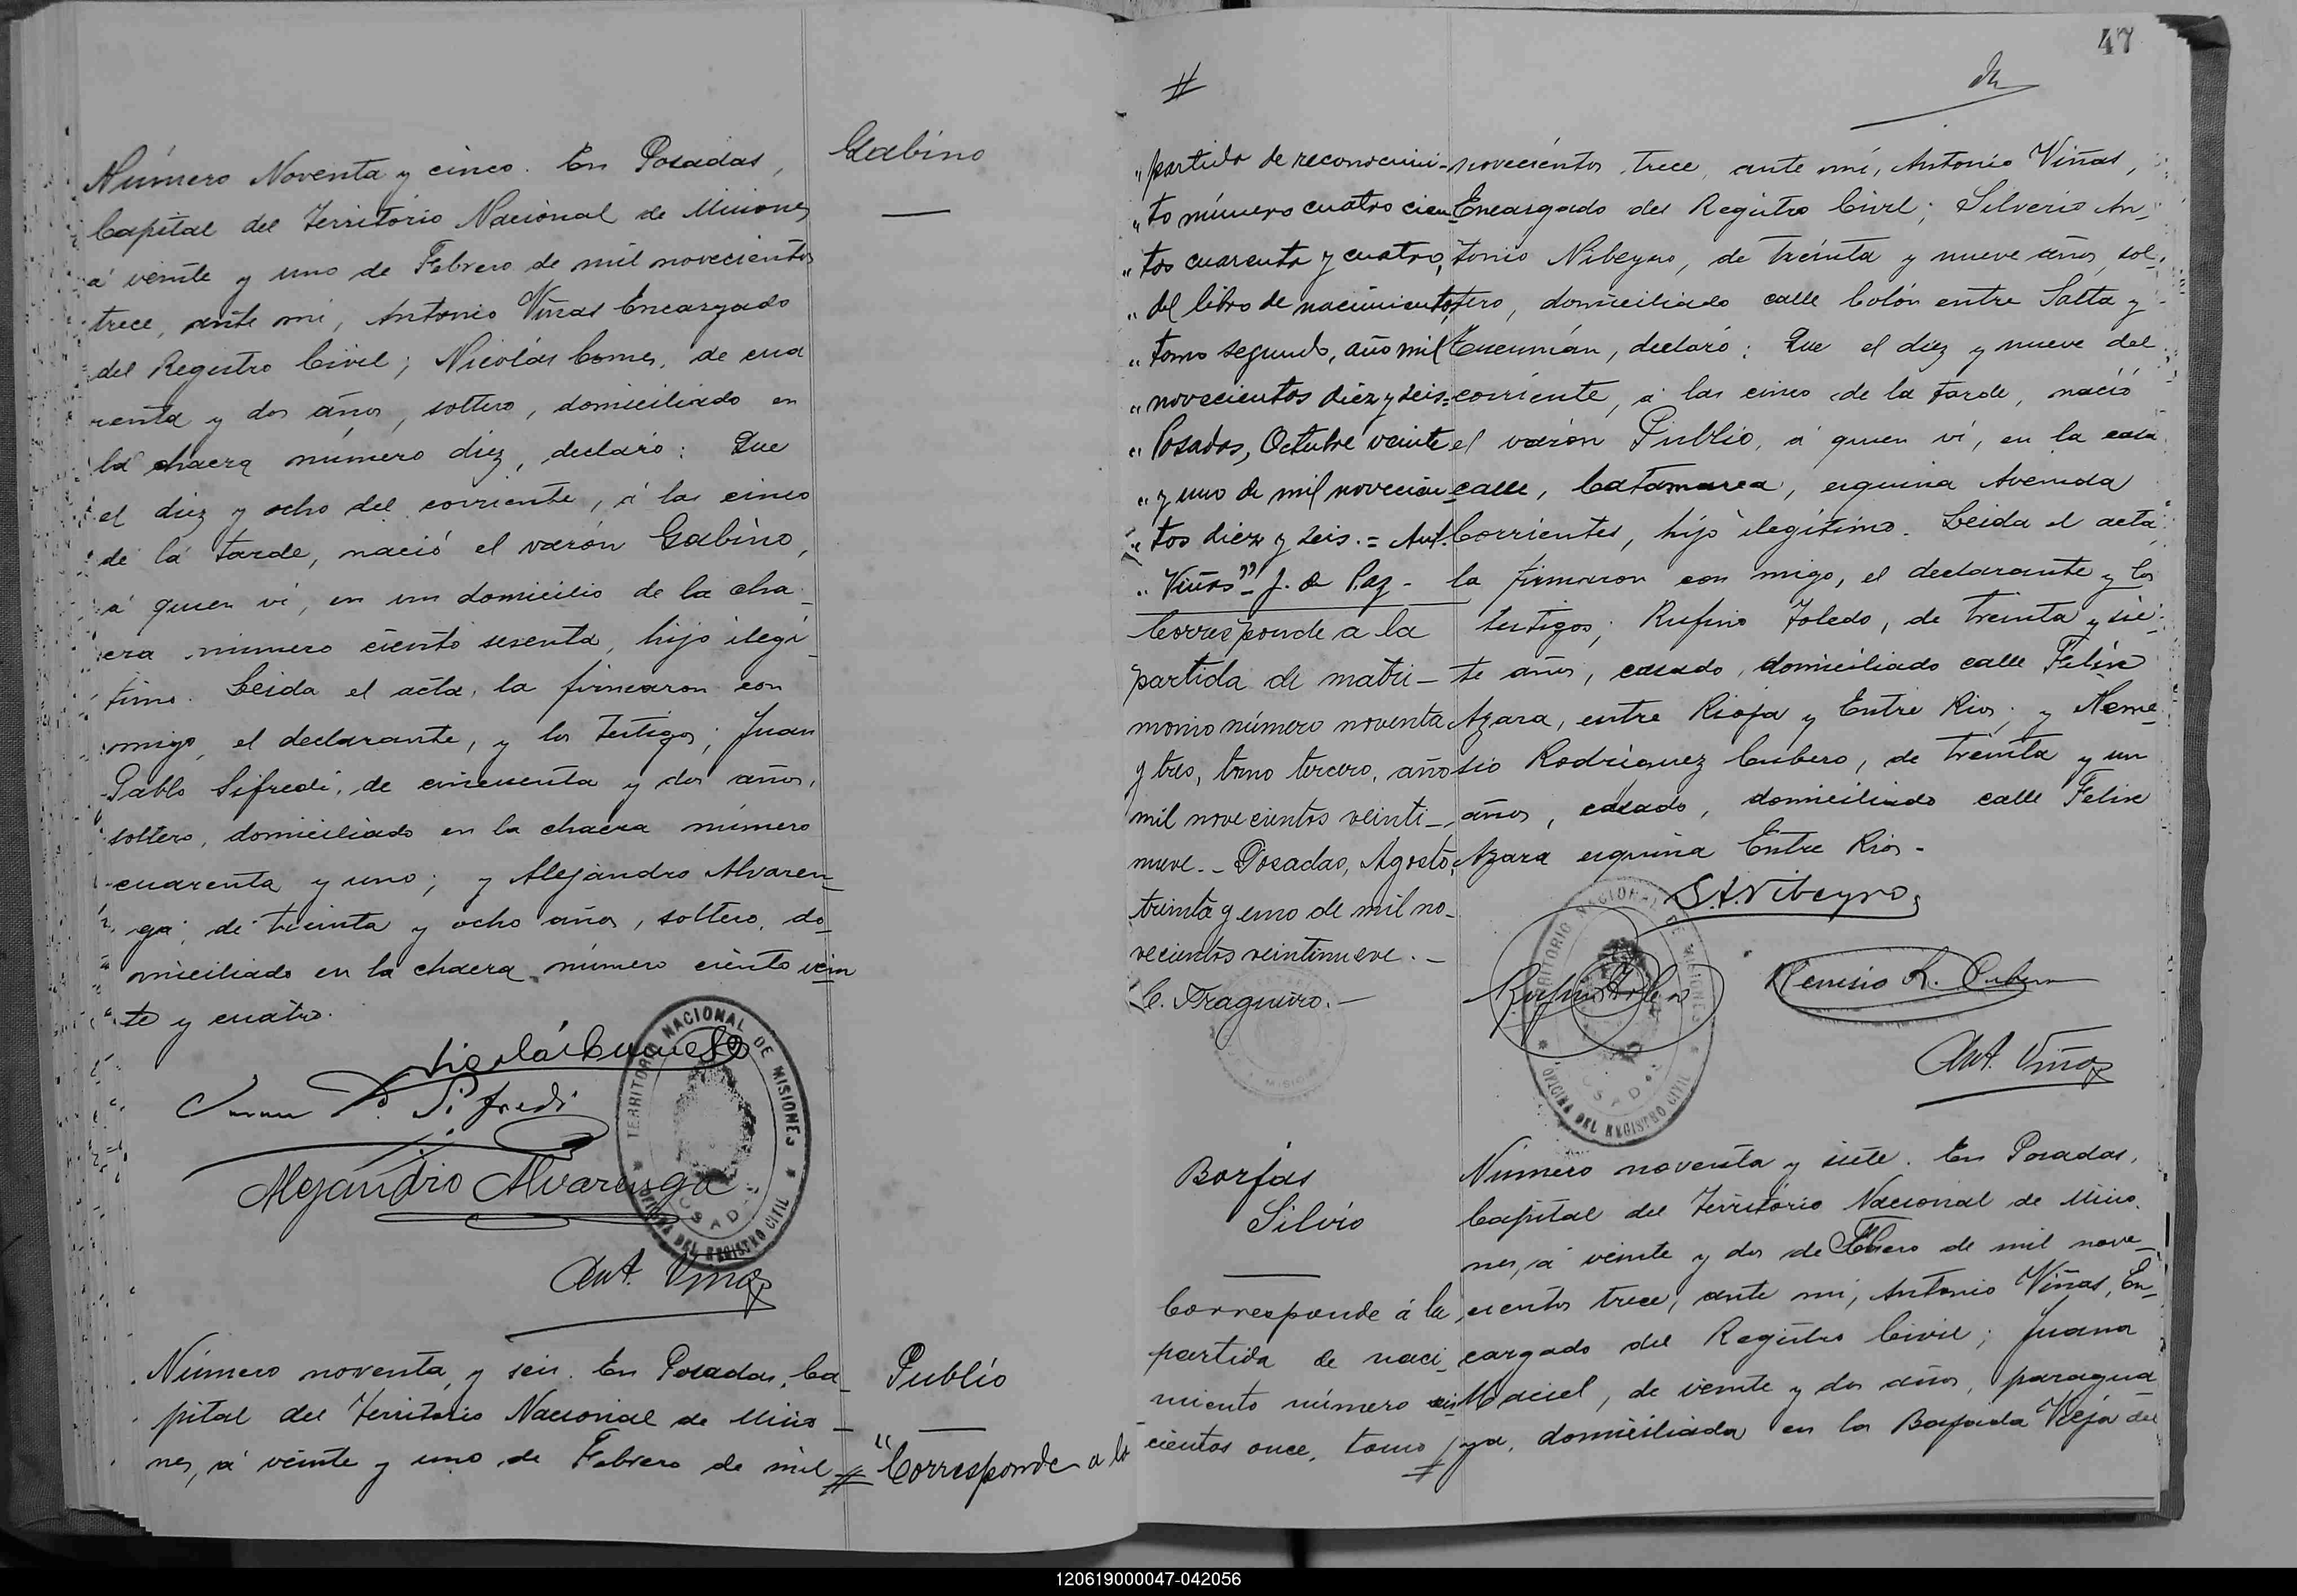 Número Noventa y cinco. En Posadas,
Capital del Territorio Nacional de Misiones
á veinte y uno de Febrero de mil novecientos
trece, ante mi, Antonio Viñas Encargado
del Registro Civil; Nicolás Comes, de cua
renta y dos años, soltero, domiciliado en
la chacra número diez, declaró: Que
el diez y ocho del corriente, á las cinco
de la tarde, nació el varón Gabino,
á quien ví, en un domicilio de la cha-
cra número ciento sesenta, hijo ilegí-
timo. Leida el acta, la firmaron con
migo, el declarante, y los testigos; Juan
Pablo Sifredi, de cincuenta y dos años,
soltero, domiciliado en la chacra número
cuarenta y uno; y Alejandro Alvaren-
ga, de treinta y ocho años, soltero, do-
miciliado en la chacra número ciento vein
te y cuatro.
Juan P. Sifredi
Alejandro Alvarenga
Ant. Viñas
TERRITORIO NACIONAL DE MISIONES
OFICINA DEL REGISTRO CIVIL
POSADAS
Gabino
Número noventa y seis. En Posadas, Ca-
pital del Territorio Nacional de Misio-
nes, á veinte y uno de Febrero de mil
Publio
# "Corresponde a la
47
#
"partida de reconocimi-
"to número cuatro cien-
"tos cuarenta y cuatro,
"del libro de nacimientos,
"tomo segundo, año mil
"novecientos diez y seis=
"Posadas, Octubre veinte
"y uno de mil novecien-
"tos diez y seis.= Ant.
"Viñas"- J. de Paz-
Corresponde a la
partida de matri-
monio número noventa
y tres, tomo tercero, año
mil novecientos veinti-
nueve.- Posadas, Agosto
treinta y uno de mil no-
vecientos veintinueve.-
C. Fragueiro.-
novecientos trece, ante mi, Antonio Viñas,
Encargado del Registro Civil; Silverio An-
tonio Nibeyro, de treinta y nueve años, sol-
tero, domiciliado calle Colón entre Salta y
Tucumán, declaró: Que el diez y nueve del
corriente, á las cinco de la tarde, nació
el varón Publio, á quien ví, en la casa
calle, Catamarca, esquina Avenida
Corrientes, hijo ilegítimo. Leida el acta,
la firmaron con migo, el declarante y los
testigos; Rufino Toledo, de treinta y sie-
te años, casado, domiciliado calle Felix
Azara, entre Rioja y Entre Rios; y Neme-
sio Rodriguez Cubero, de treinta y un
años, casado, domiciliado calle Felix
Azara esquina Entre Rios-
S. A. Nibeyro
Rufino Toledo
Nemesio R. Cubero
Ant. Viñas
TERRITORIO NACIONAL DE MISIONES
OFICINA DEL REGISTRO CIVIL
POSADAS
Borjas
Silvio
Corresponde á la
partida de naci-
miento número seis
cientos once, tomo
#
Número noventa y siete. En Posadas,
Capital del Territorio Nacional de Misio-
nes, á veinte y dos de Febrero de mil nove-
cientos trece, ante mi, Antonio Viñas, En-
cargado del Registro Civil; Juana
Maciel, de veinte y dos años, paragua
ya, domiciliada en la Bajada Vieja del
120619000047-042056